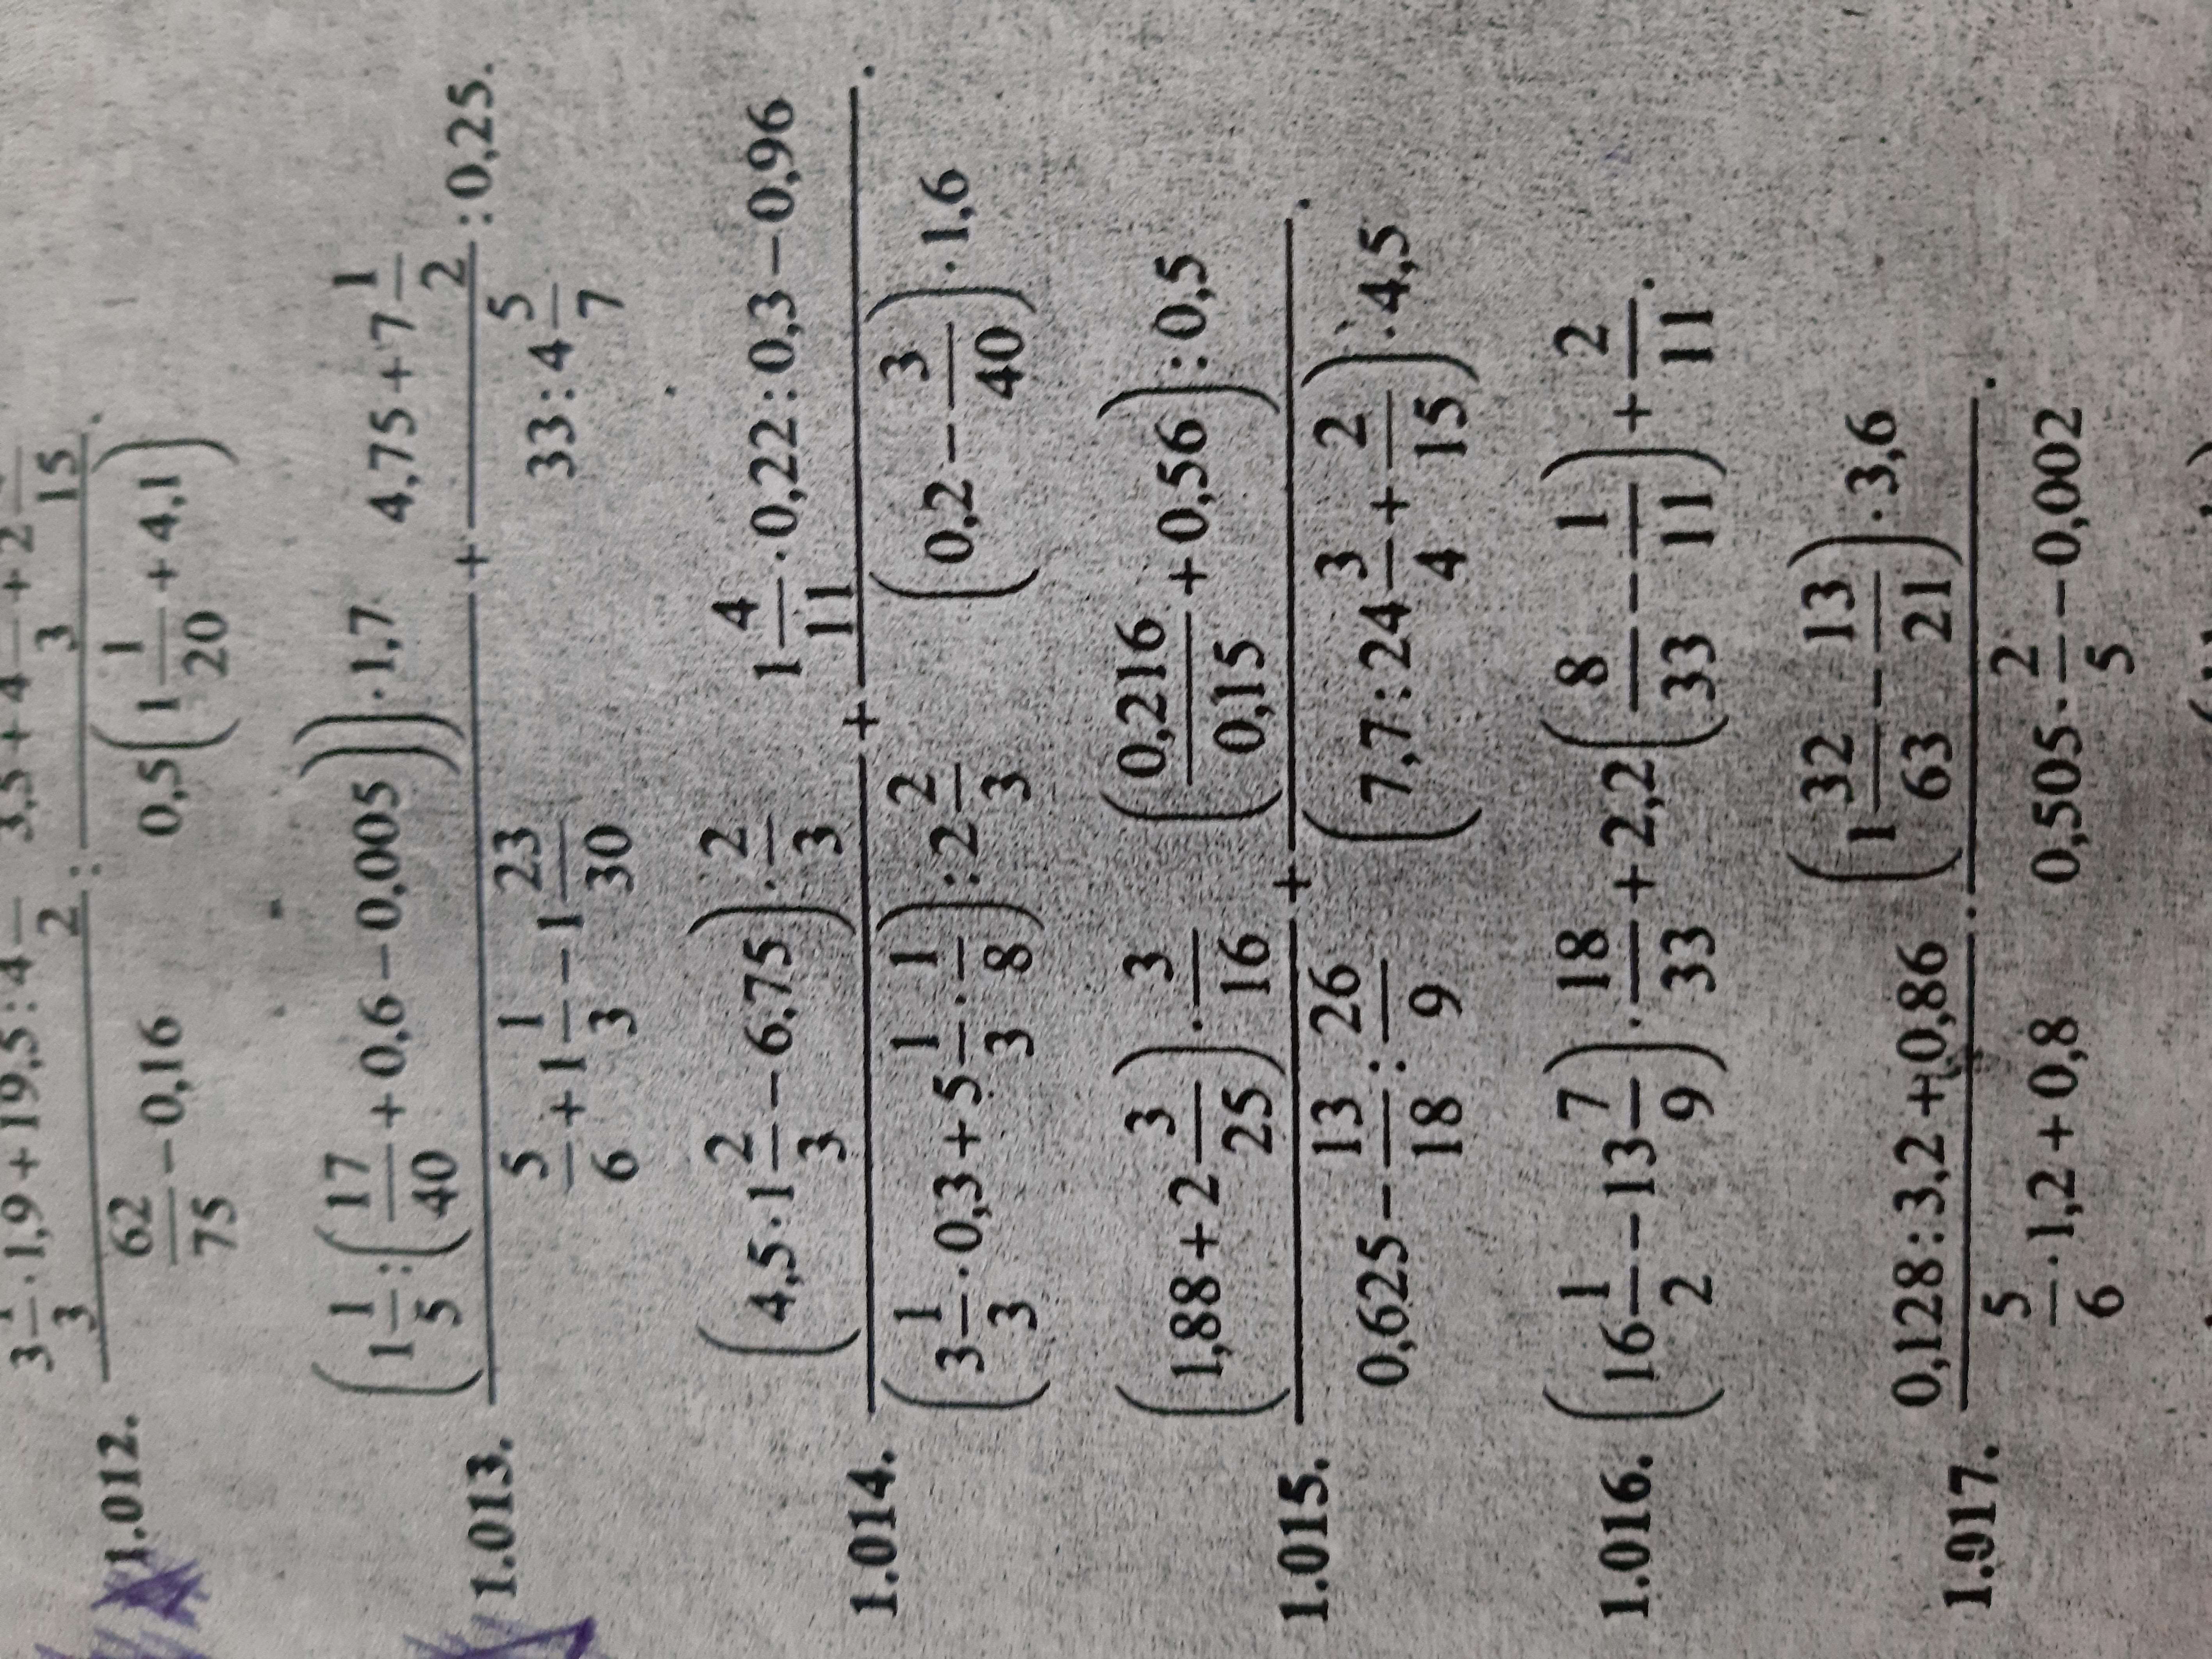 1.012. \frac{3\frac{1}{3} \cdot 1,9 + 19,5 : 4\frac{1}{2}}{\frac{62}{75} - 0,16} : \frac{3,5 + 4\frac{}{3} + 2\frac{}{15}}{0,5\left(1\frac{1}{20} + 4,1\right)}.
1.013. \frac{\left(1\frac{1}{5} : \left(\frac{17}{40} + 0,6 - 0,005\right)\right) \cdot 1,7}{\frac{5}{6} + 1\frac{1}{3} - 1\frac{23}{30}} + \frac{4,75 + 7\frac{1}{2}}{33 : 4\frac{5}{7}} : 0,25.
1.014. \frac{\left(4,5 \cdot 1\frac{2}{3} - 6,75\right) \cdot \frac{2}{3}}{\left(3\frac{1}{3} \cdot 0,3 + 5\frac{1}{3} \cdot \frac{1}{8}\right) : 2\frac{2}{3}} + \frac{1\frac{4}{11} \cdot 0,22 : 0,3 - 0,96}{\left(0,2 - \frac{3}{40}\right) \cdot 1,6}.
1.015. \frac{\left(1,88 + 2\frac{3}{25}\right) \cdot \frac{3}{16}}{0,625 - \frac{13}{18} : \frac{26}{9}} + \frac{\left(\frac{0,216}{0,15} + 0,56\right) : 0,5}{\left(7,7 : 24\frac{3}{4} + \frac{2}{15}\right) \cdot 4,5}.
1.016. \left(16\frac{1}{2} - 13\frac{7}{9}\right) \cdot \frac{18}{33} + 2,2\left(\frac{8}{33} - \frac{1}{11}\right) + \frac{2}{11}.
1.017. \frac{0,128 : 3,2 + 0,86}{\frac{5}{6} \cdot 1,2 + 0,8} \cdot \frac{\left(1\frac{32}{63} - \frac{13}{21}\right) \cdot 3,6}{0,505 \cdot \frac{2}{5} - 0,002}.